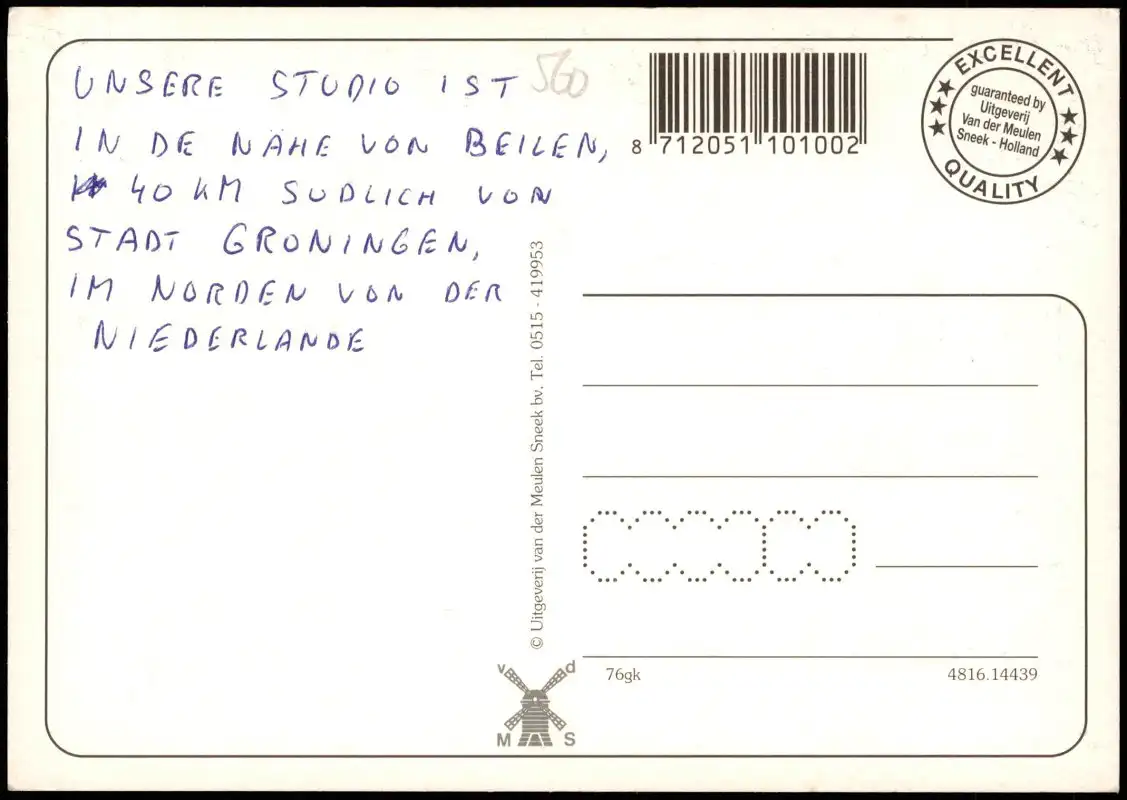 UNSERE STUDIO IST
IN DE NÄHE VON BEILEN,
40 KM SUDLICH VON
STADT GRONINGEN,
IM NORDEN VON DER
NIEDERLANDE
560
8 712051 101002
EXCELLENT
guaranteed by
Uitgeverij
Van der Meulen
Sneek - Holland
QUALITY
© Uitgeverij van der Meulen Sneek bv. Tel. 0515 - 419953
v d
M S
76gk
4816.14439